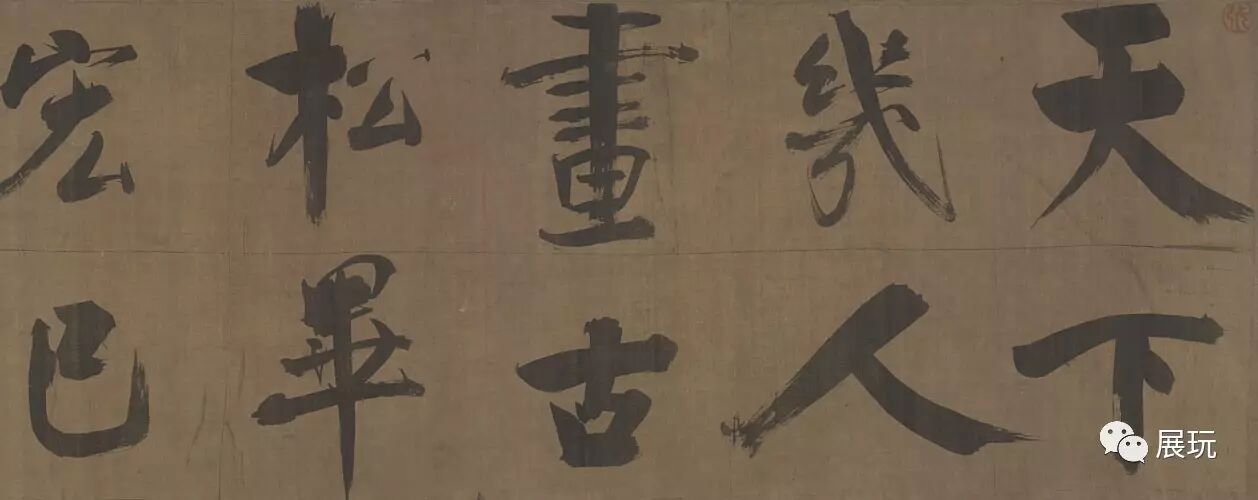 天下
幾人
畫古
松畢
宏已
展玩